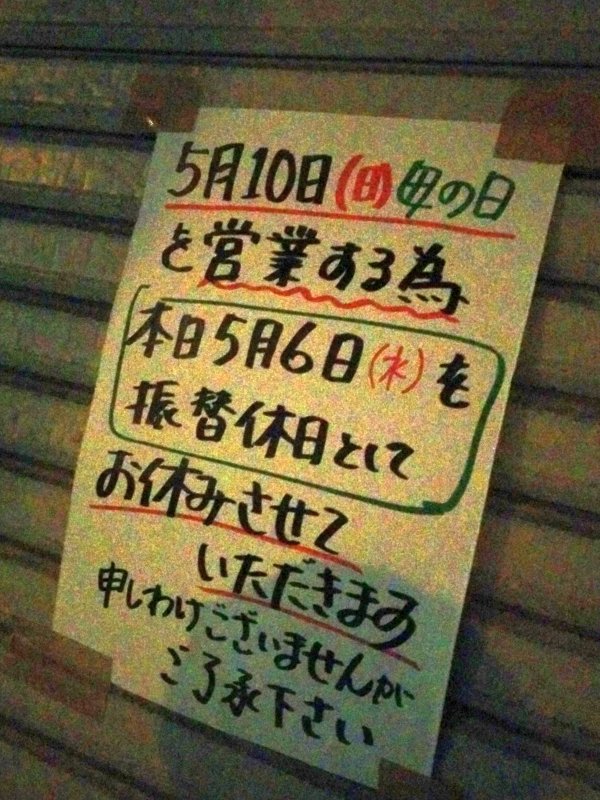 5月10日(日)母の日
を営業する為
本日5月6日(水)を
振替休日として
お休みさせて
いただきます
申しわけございませんが
ご了承下さい